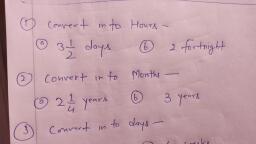 ① Convert in to Hours —
ⓐ 3 1/2 days ⓑ 2 fortnight
② Convert in to Months —
ⓐ 2 1/4 years ⓑ 3 years
③ Convert in to days —